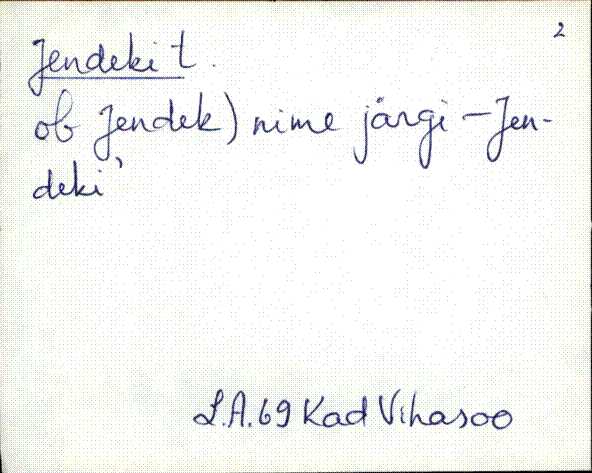 2
Jendeki t.
ob Jendek) nime järgi – Jen-
deki'
L.A. 69 Kad Vihasoo